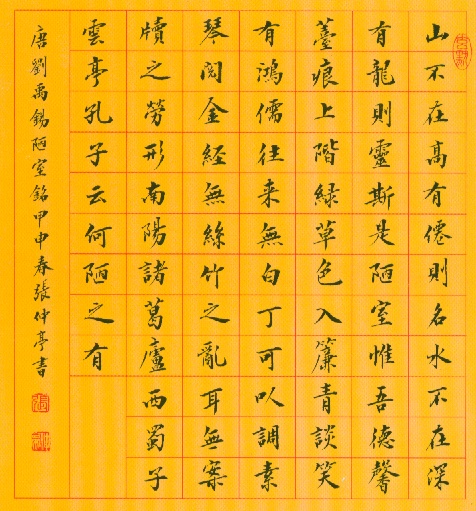 山不在高有僊則名水不在深
有龍則靈斯是陋室惟吾德馨
薹痕上階緑草色入簾青談笑
有鴻儒往来無白丁可以調素
琴閱金経無絲竹之亂耳無案
牘之勞形南陽諸葛廬西蜀子
雲亭孔子云何陋之有
唐劉禹錫陋室銘甲申春張仲亭書